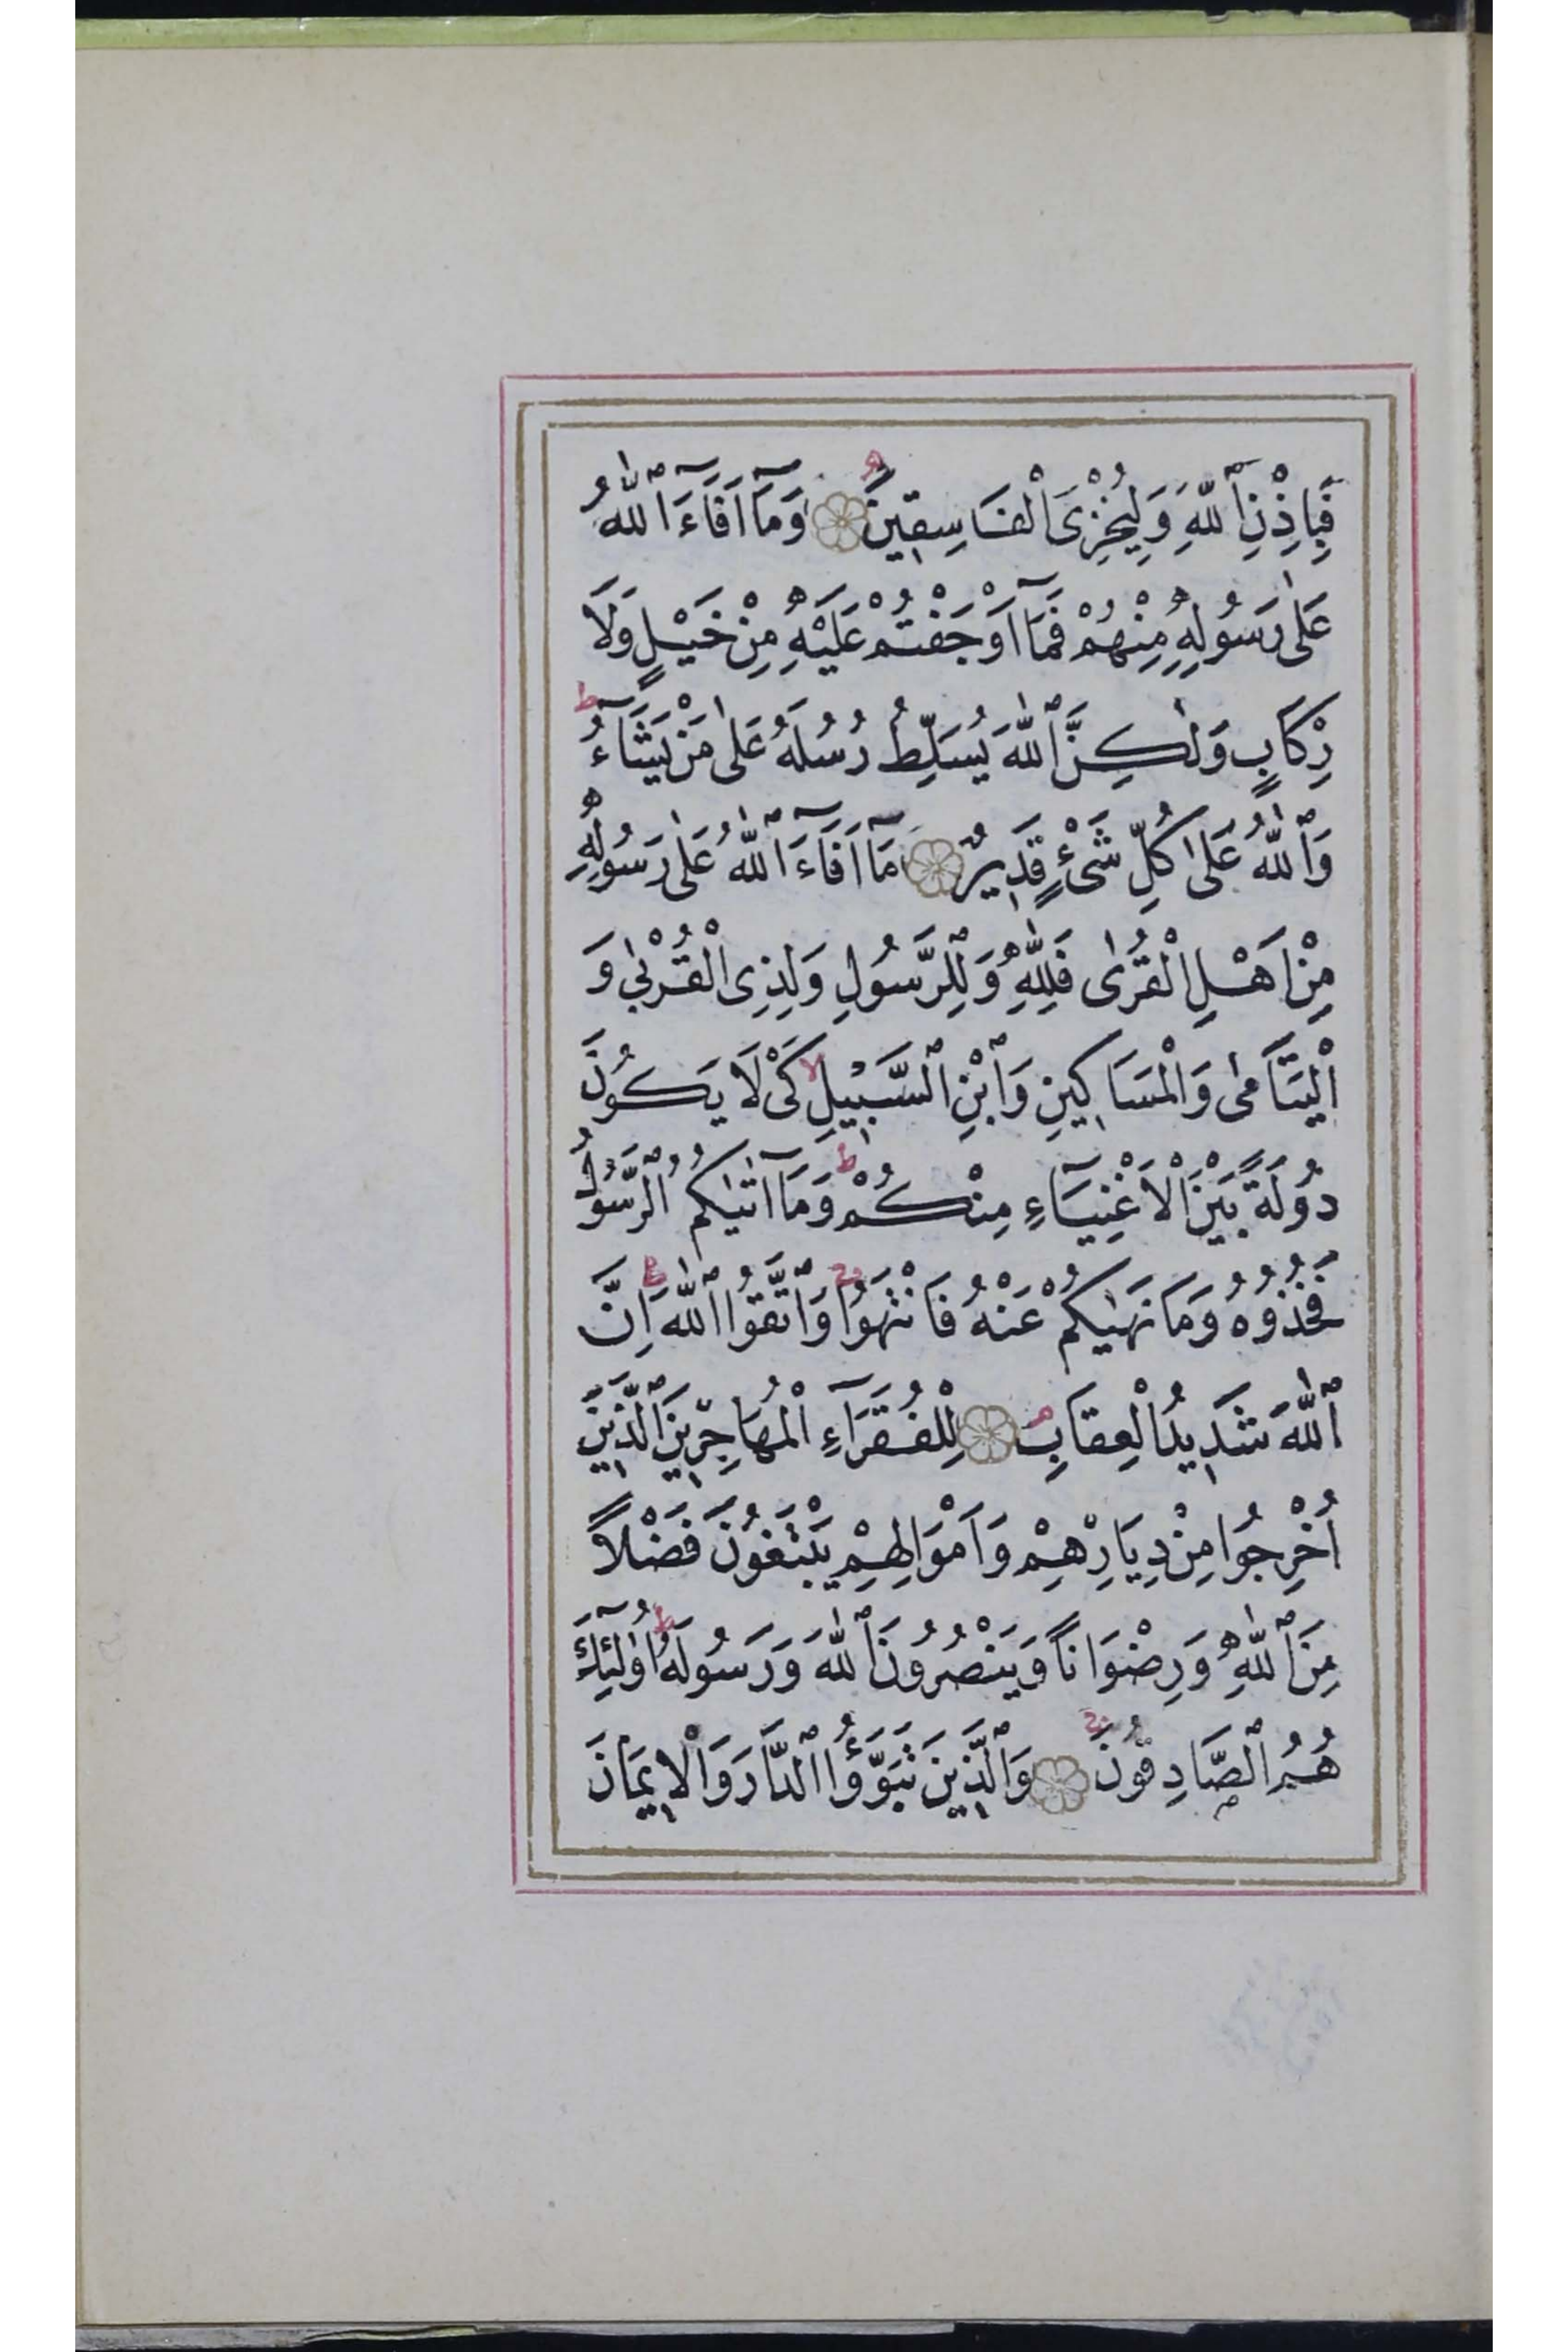 فَبِاِذْنِ ٱللّٰهِ وَلِيُخْزِىَ الْفَاسِقِينَ وَمَٓا اَفَٓاءَ ٱللّٰهُ
عَلٰى رَسُولِهِ مِنْهُمْ فَمَٓا اَوْجَفْتُمْ عَلَيْهِ مِنْ خَيْلٍ وَلَا
رِكَابٍ وَلٰكِنَّ ٱللّٰهَ يُسَلِّطُ رُسُلَهُ عَلٰى مَنْ يَشَٓاءُ ط
وَٱللّٰهُ عَلٰى كُلِّ شَىْءٍ قَدِيرٌ مَٓا اَفَٓاءَ ٱللّٰهُ عَلٰى رَسُولِهِ
مِنْ اَهْلِ الْقُرٰى فَلِلّٰهِ وَلِلرَّسُولِ وَلِذِى الْقُرْبٰى وَ
الْيَتَامٰى وَالْمَسَاكِينِ وَٱبْنِ ٱلسَّبِيلِ لا كَىْ لَا يَكُونَ
دُولَةً بَيْنَ الْاَغْنِيَٓاءِ مِنْكُمْ ط وَمَٓا اٰتٰيكُمُ ٱلرَّسُولُ
فَخُذُوهُ وَمَا نَهٰيكُمْ عَنْهُ فَانْتَهُوا ج وَٱتَّقُوا ٱللّٰهَ ط اِنَّ
ٱللّٰهَ شَدِيدُ الْعِقَابِ م لِلْفُقَرَٓاءِ الْمُهَاجِرِينَ ٱلَّذِينَ
اُخْرِجُوا مِنْ دِيَارِهِمْ وَاَمْوَالِهِمْ يَبْتَغُونَ فَضْلاً
مِنَ ٱللّٰهِ وَرِضْوَاناً وَيَنْصُرُونَ ٱللّٰهَ وَرَسُولَهُ ط اُولٰٓئِكَ
هُمُ ٱلصَّادِقُونَ ج وَٱلَّذِينَ تَبَوَّؤُا ٱلدَّارَ وَالْاِيمَانَ